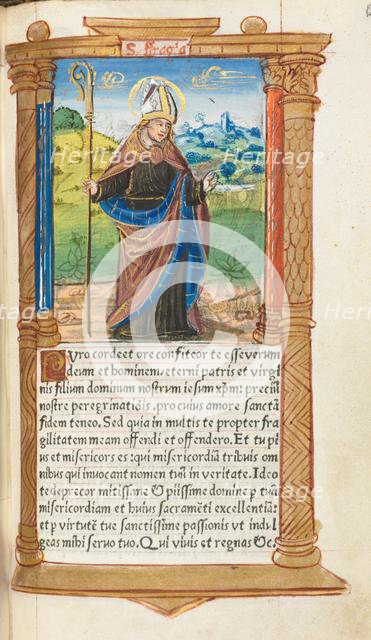 S. ffragia
Puro corde et ore confiteor te esse verum
deum et hominem, eterni patris et virgi
nis filium dominum nostrum iesum xp̄m: preciū
nostre peregrinatiōis, pro cuius amore sanctā
fidem teneo. Sed quia in multis te propter fra
gilitatem meam offendi et offendero. Et tu pi
us et misericors es: qui misericordiā tribuis om
nibus qui invocant nomen tuū in veritate. Ideo
te deprecor mitissime & piissime domine p tuā
misericordiam et huius sacramēti excellentiā:
et p virtutē tue sanctissime passionis ut indul
geas mihi servo tuo. Qui vivis et regnas &c.
Heritage
Heritage
Heritage
Images
Heritage
Images